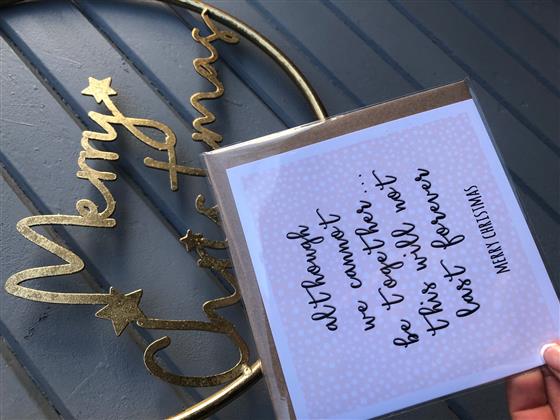 Merry
Christmas
although
we cannot
be together...
this will not
last forever
MERRY CHRISTMAS